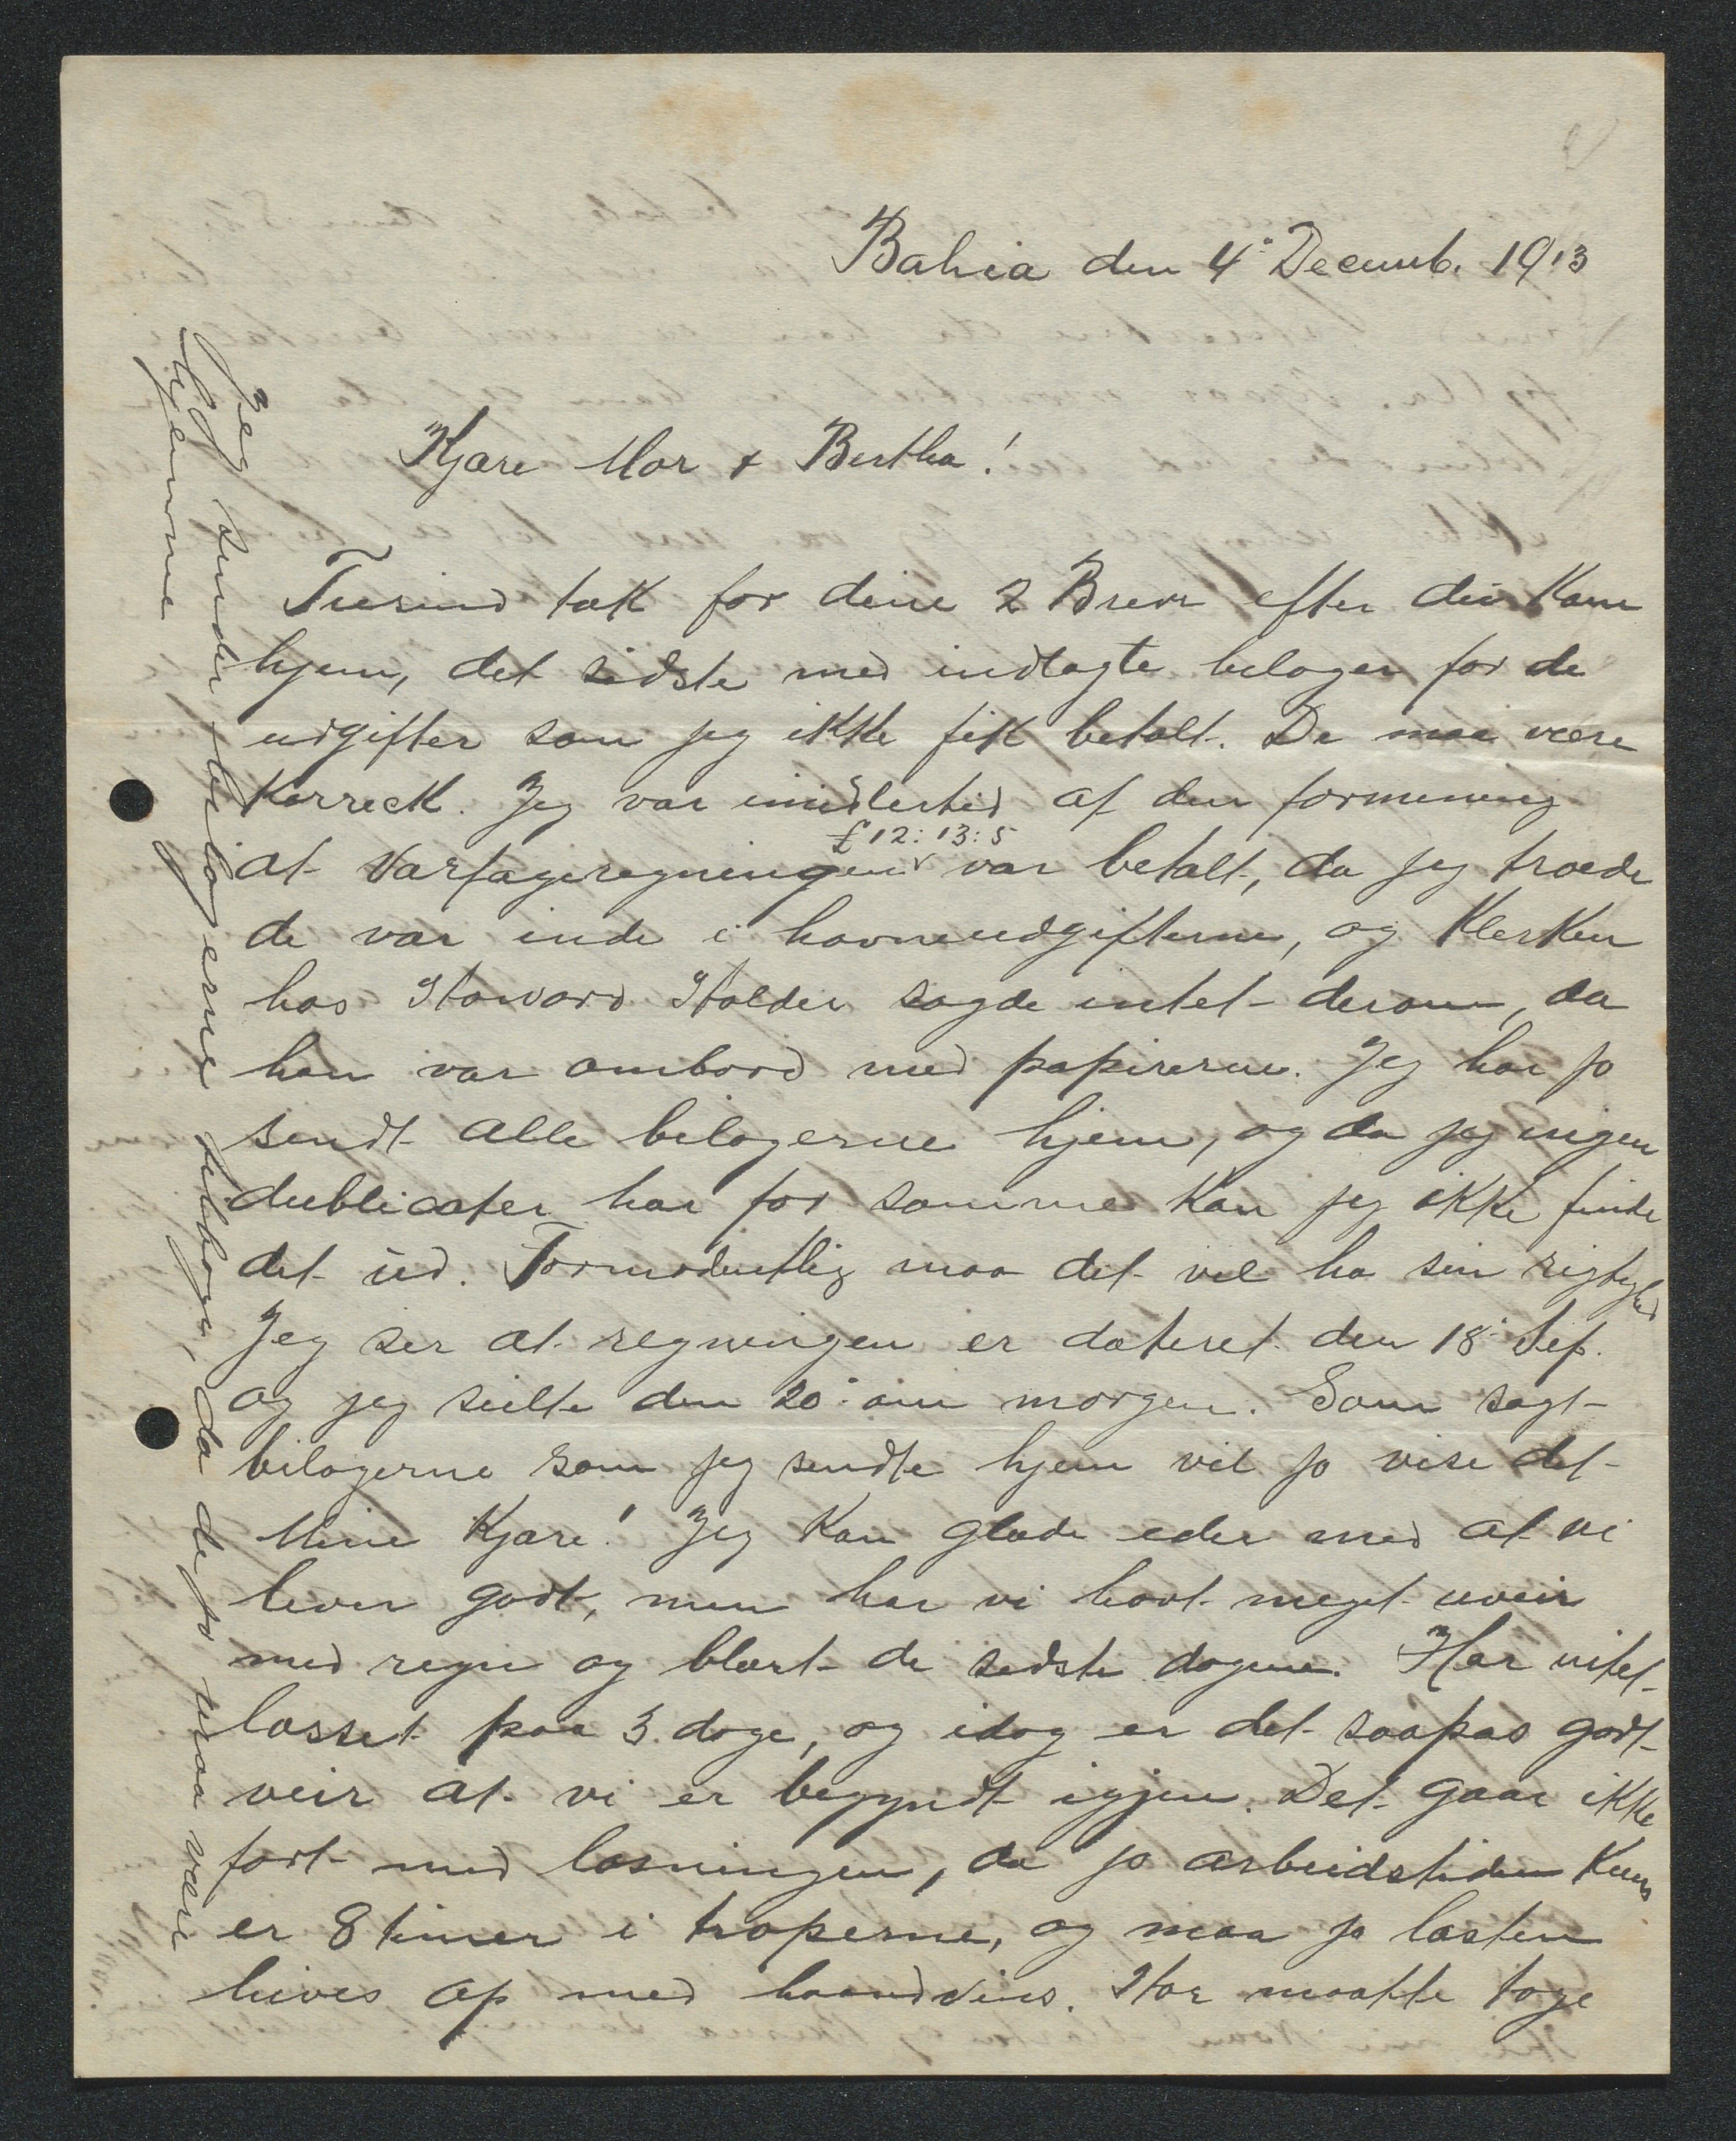 Bahia den 4de Decemb. 1913
Kjære Mor & Bertha!
Tusind tak for dine 2 Breve efter du kom
hjem, det sidste med indlagte bilager for de
udgifter som jeg ikke fik betalt. De maa være
korreckt. Jeg var imidlertid af den formening
£12:13:5
at Varfageregningen var betalt, da jeg troede
de var inde i havneudgifterne, og klerken
hos Howard Holder sagde intet derom, da
han var ombord med papirerne. Jeg har jo
sendt alle bilagerne hjem, og da jeg ingen
dublicater har for samme kan jeg ikke finde
det ud. Formodentlig maa det vel ha sin rigtighed
Jeg ser at regningen er dateret den 18de Sep.
og jeg seilte den 20de om morgen. Som sagt
bilagerne som jeg sendte hjem vil jo vise det
Mine Kjære! Jeg kan glæde eder med at vi
lever godt, men har vi havt meget uveir
med regn og blæst de sidste dagene. Har intet
losset paa 3 dage, og idag er det saapas godt
veir at vi er begyndt igjen. Det gaar ikke
fort med losningen, da jo arbeidstiden kun
er 8 timer i troperne, og maa jo lasten
hives op med haandvins. Har maatte tage
Jeg sender bilagerne tilbage, da de jo maa være
hjemme